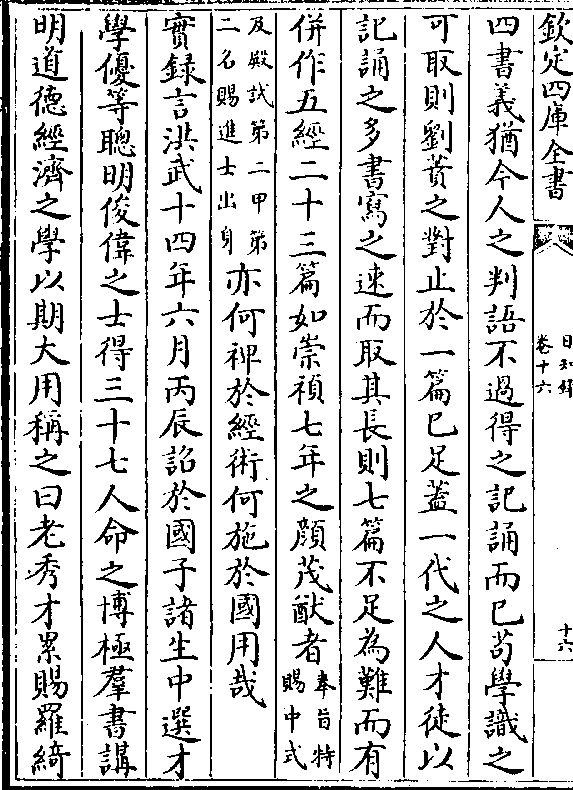 欽定四庫全書
日知録
卷十六
十六
四書義猶今人之判語不過得之記誦而已苟學識之
可取則劉蕡之對止於一篇已足蓋一代之人才徒以
記誦之多書寫之速而取其長則七篇不足為難而有
併作五經二十三篇如崇禎七年之顔茂猷者奉旨特
賜中式
及殿試第二甲第
二名賜進士出身亦何裨於經術何施於國用哉
實録言洪武十四年六月丙辰詔於國子諸生中選才
學優等聰明俊偉之士得三十七人命之博極羣書講
明道德經濟之學以期大用稱之曰老秀才累賜羅綺